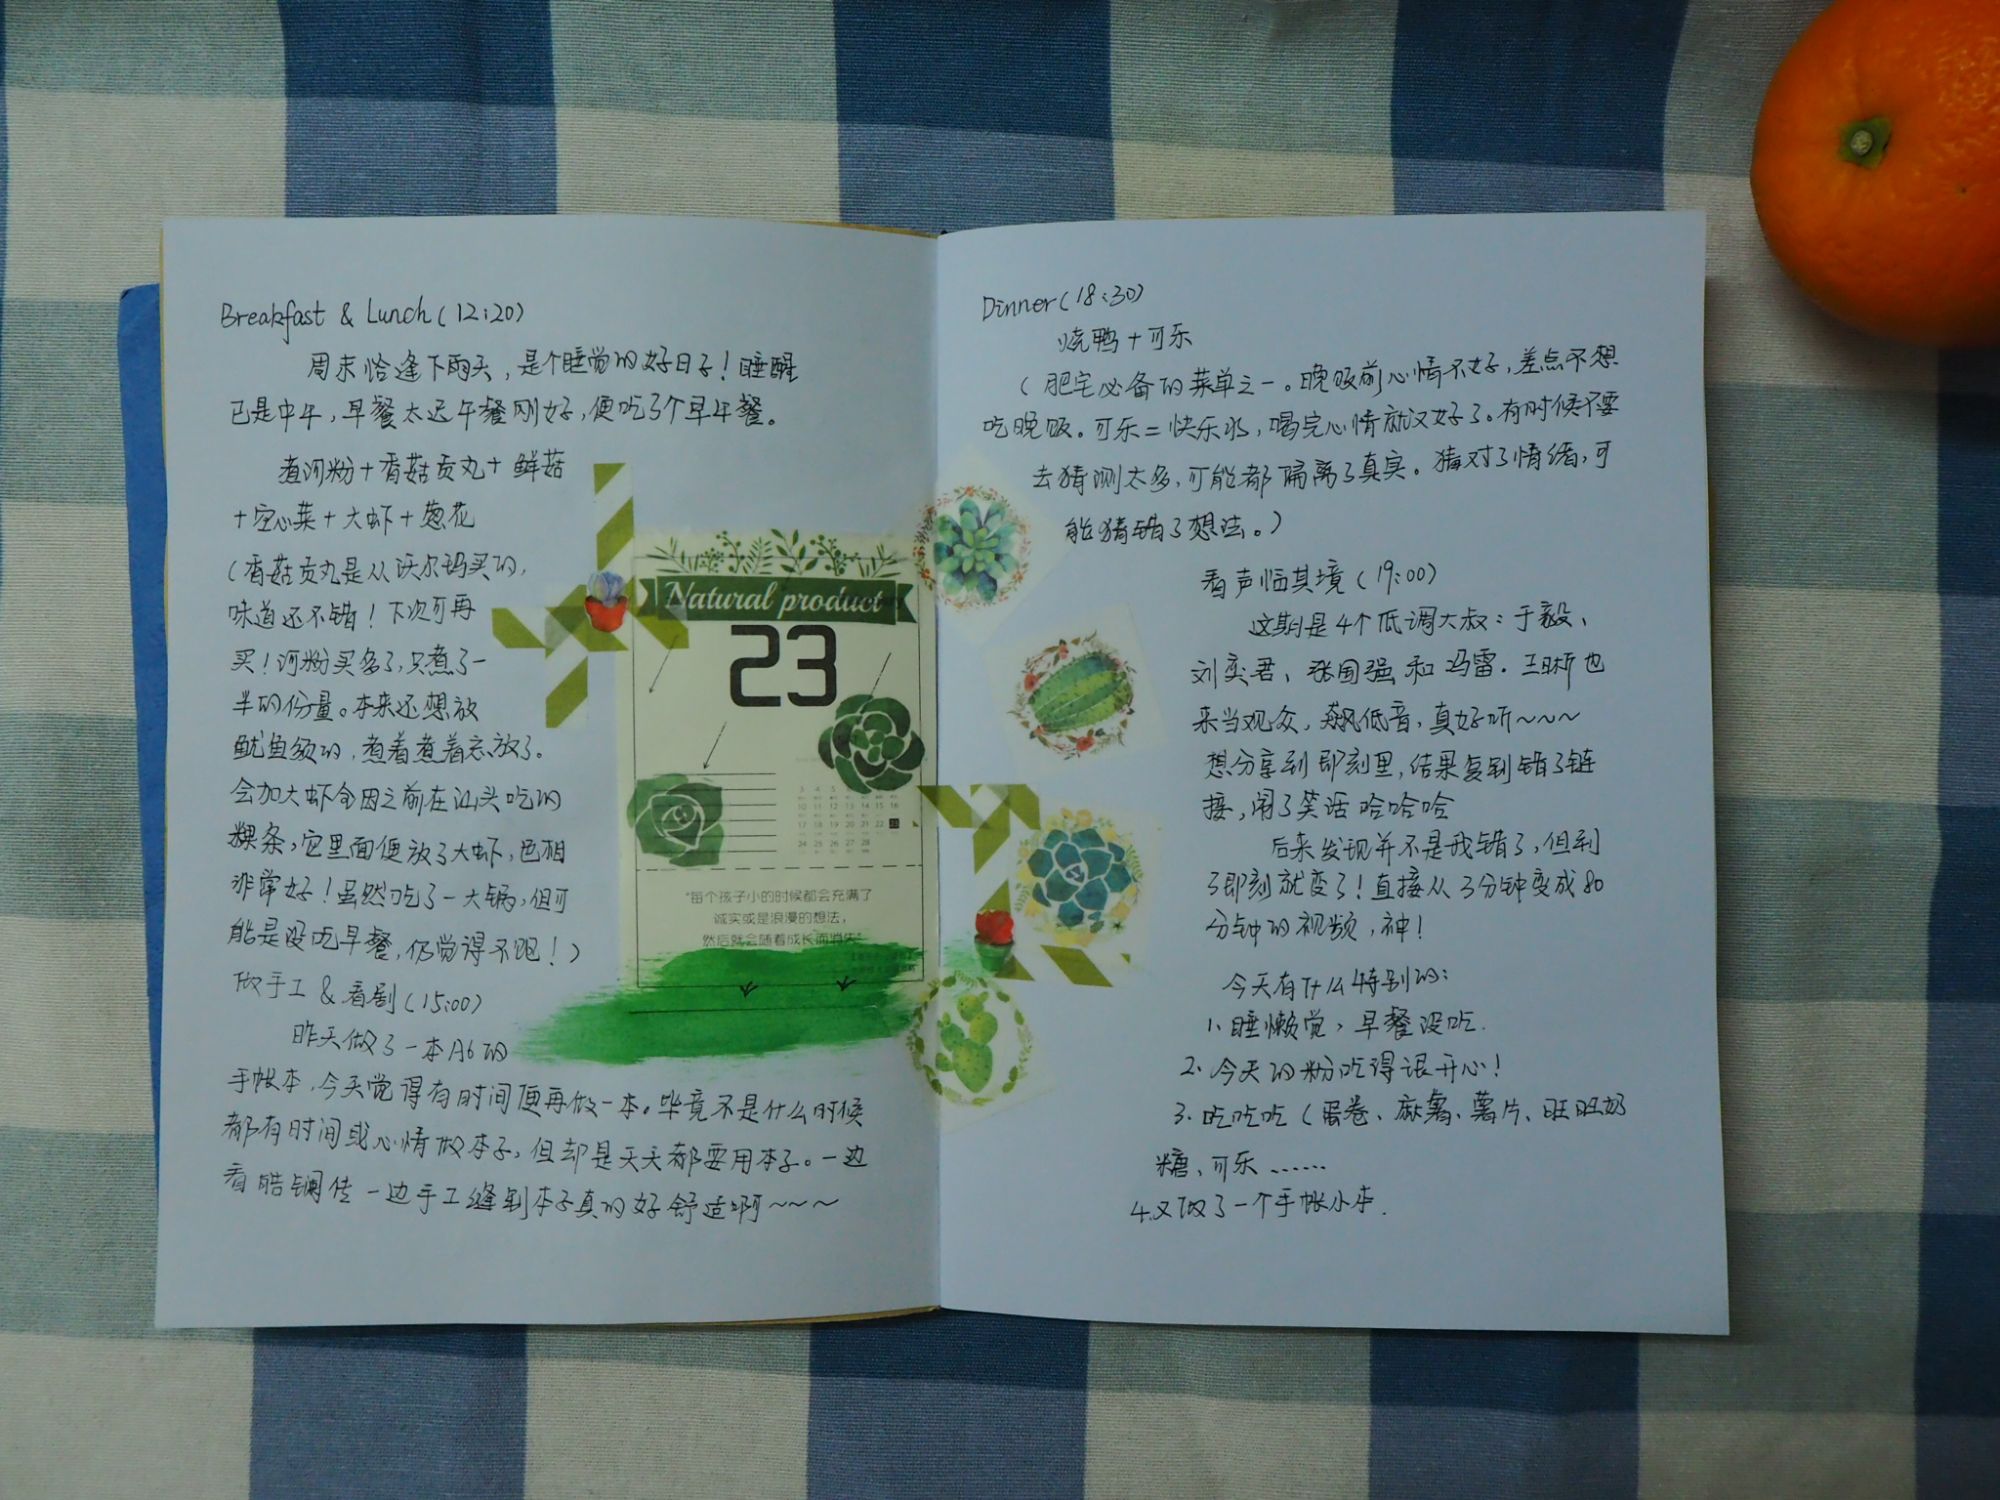 Breakfast & Lunch(12:20)
周末恰逢下雨天，是个睡觉的好日子！睡醒
已是中午，早餐太迟午餐刚好，便吃了个早午餐。
煮河粉+香菇贡丸+鲜菇
+空心菜+大虾+葱花
(香菇贡丸是从沃尔玛买的，
味道还不错！下次可再
买！河粉买多了，只煮了一
半的份量。本来还想放
鱿鱼须的，煮着煮着忘放了。
会加大虾全因之前在汕头吃的
粿条，它里面便放了大虾，色相
非常好！虽然吃了一大锅，但可
能是没吃早餐，仍觉得不饱！)
做手工 & 看剧(15:00)
昨天做了一本A6的
手帐本，今天觉得有时间便再做一本。毕竟不是什么时候
都有时间或心情做本子，但却是天天都要用本子。一边
看皓镧传一边手工缝制本子真的好舒适啊~~~
Natural product
23
3 4 5 6 7 8 9
10 11 12 13 14 15 16
17 18 19 20 21 22 23
24 25 26 27 28
“每个孩子小的时候都会充满了
诚实或是浪漫的想法，
然后就会随着成长而消失”
Dinner(18:30)
烧鸭+可乐
(肥宅必备的菜单之一。晚饭前心情不好，差点不想
吃晚饭。可乐=快乐水，喝完心情就又好了。有时候不要
去猜测太多，可能都隔离了真实。猜对了情绪，可
能猜错了想法。)
看声临其境(19:00)
这期是4个低调大叔：于毅、
刘奕君、张国强和冯雷。王晰也
来当观众，飙低音，真好听~~~
想分享到即刻里，结果复制错了链
接，闹了笑话哈哈哈
后来发现并不是我错了，但到
了即刻就变了！直接从3分钟变成80
分钟的视频，神！
今天有什么特别的：
1.睡懒觉，早餐没吃.
2.今天的粉吃得很开心！
3.吃吃吃(蛋卷、麻薯、薯片、旺旺奶
糖、可乐……
4.又做了一个手帐小本.